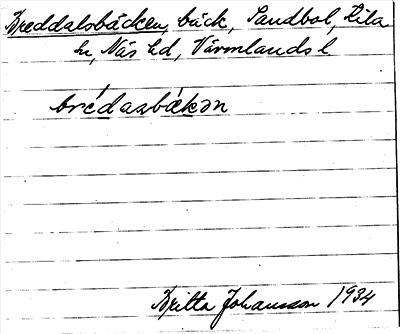 Breddalsbäcken, bäck, Sandbol, Kila
sn, Näs hd, Värmlands l
brédasbäkən
Britta Johansson 1934